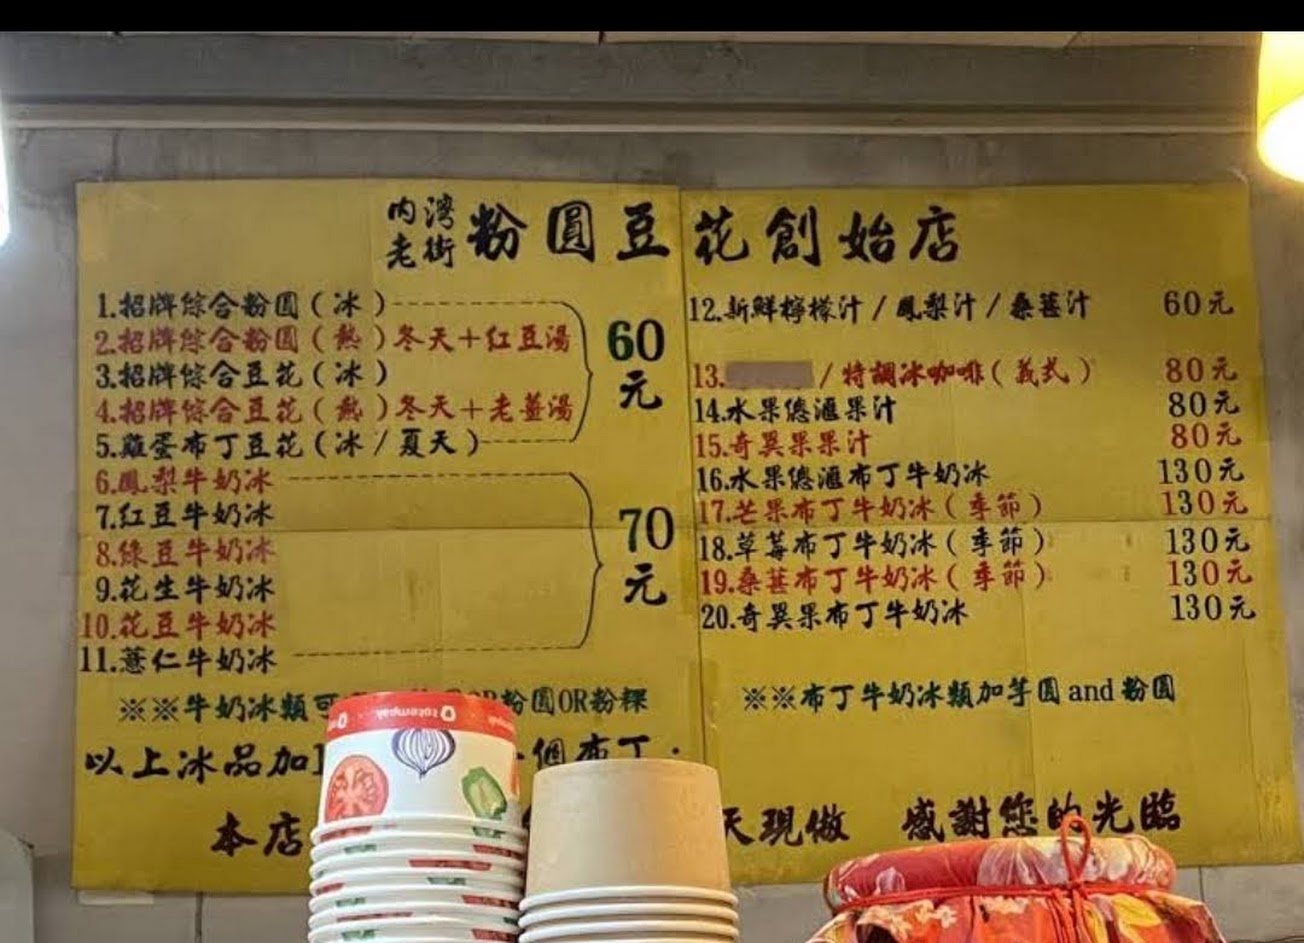 內灣老街 粉圓豆花創始店
1.招牌綜合粉圓(冰)
2.招牌綜合粉圓(熱)冬天+紅豆湯
3.招牌綜合豆花(冰)
4.招牌綜合豆花(熱)冬天+老薑湯
5.雞蛋布丁豆花(冰/夏天)
60元
6.鳳梨牛奶冰
7.紅豆牛奶冰
8.綠豆牛奶冰
9.花生牛奶冰
10.花豆牛奶冰
11.薏仁牛奶冰
70元
※※牛奶冰類可 圓OR粉圓OR粉粿
12.新鮮檸檬汁/鳳梨汁/桑葚汁 60元
13. /特調冰咖啡(義式) 80元
14.水果總滙果汁 80元
15.奇異果果汁 80元
16.水果總滙布丁牛奶冰 130元
17.芒果布丁牛奶冰(季節) 130元
18.草莓布丁牛奶冰(季節) 130元
19.桑葚布丁牛奶冰(季節) 130元
20.奇異果布丁牛奶冰 130元
※※布丁牛奶冰類加芋圓and粉圓
以上冰品加 個布丁.
本店 天現做 感謝您的光臨
totempak